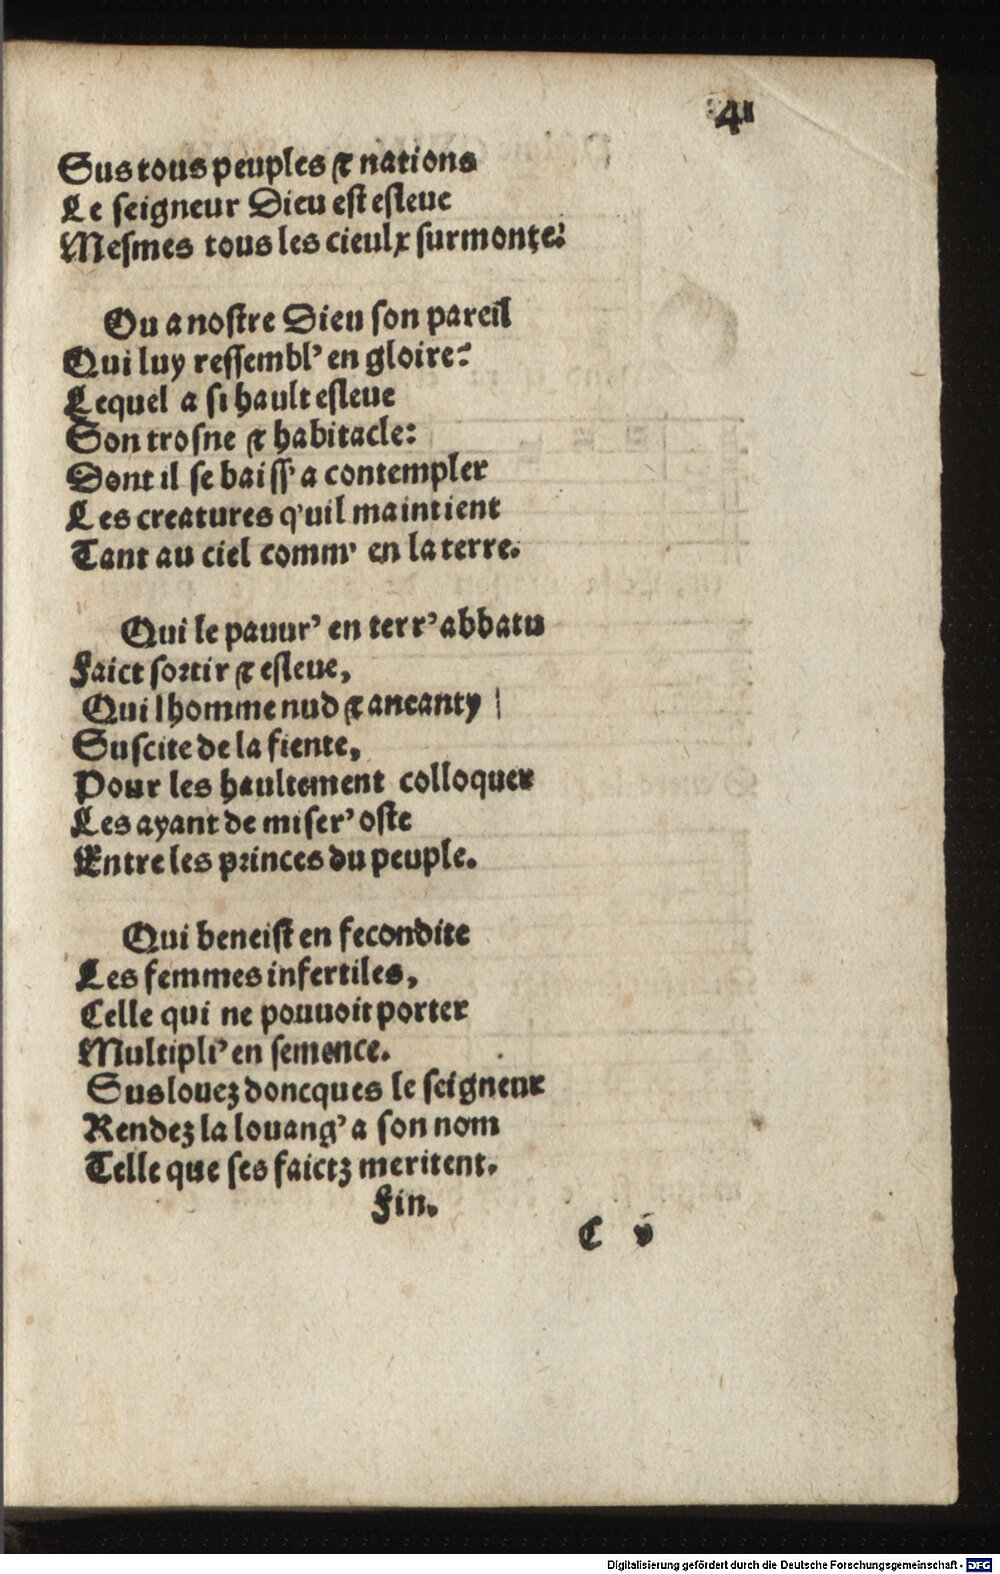 41
Sus tous peuples & nations
Le seigneur Dieu est esleue
Mesmes tous les cieulx surmonte:

Ou a nostre Dieu son pareil
Qui luy ressembl' en gloire?
Lequel a si hault esleue
Son trosne & habitacle:
Dont il se baiss' a contempler
Les creatures q'uil maintient
Tant au ciel comm' en la terre.

Qui le pauur' en terr' abbatu
Faict sortir & esleue,
Qui lhomme nud & aneanty
Suscite de la fiente,
Pour les haultement colloquer
Les ayant de miser' oste
Entre les princes du peuple.

Qui beneist en fecondite
Les femmes infertiles,
Celle qui ne pouuoit porter
Multipli' en semence.
Sus louez doncques le seigneur
Rendez la louang' a son nom
Telle que ses faictz meritent.
Fin.
C v
Digitalisierung gefördert durch die Deutsche Forschungsgemeinschaft - DFG